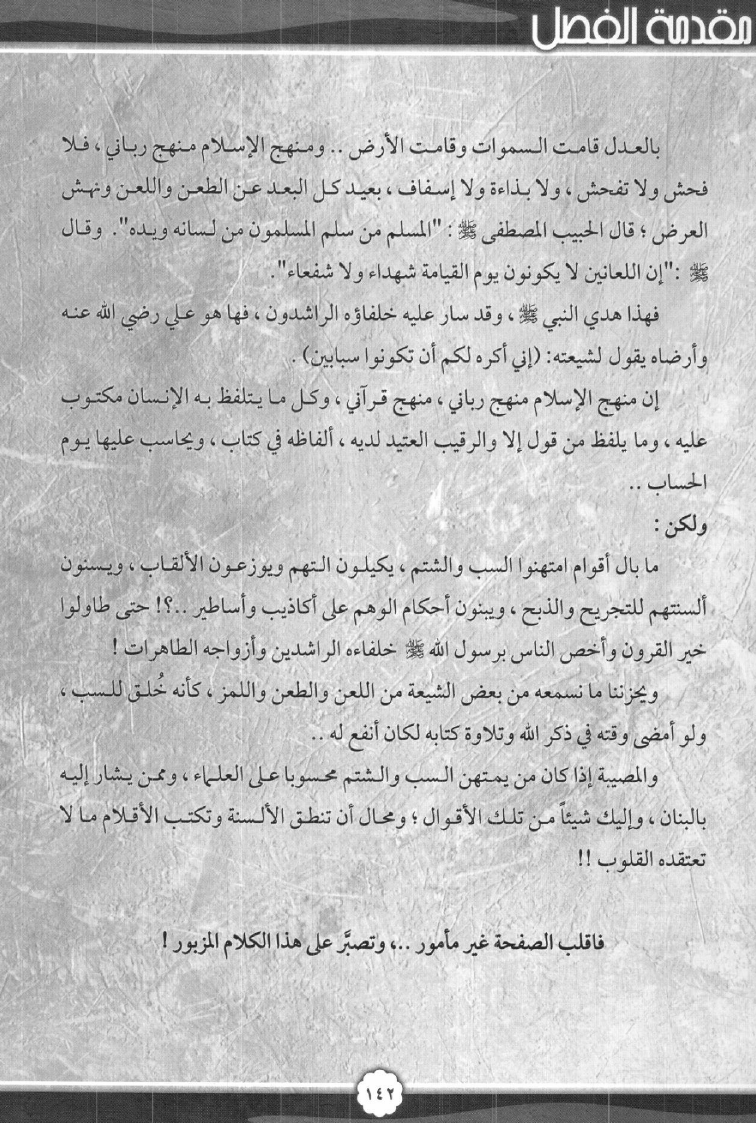 مقدمة الفصل
بالعدل قامت السموات وقامت الأرض .. ومنهج الإسلام منهج رباني ، فلا
فحش ولا تفحش ، ولا بذاءة ولا إسفاف ، بعيد كل البعد عن الطعن واللعن ونهش
العرض ؛ قال الحبيب المصطفى ﷺ : "المسلم من سلم المسلمون من لسانه ويده". وقال
ﷺ :"إن اللعانين لا يكونون يوم القيامة شهداء ولا شفعاء".
فهذا هدي النبي ﷺ ، وقد سار عليه خلفاؤه الراشدون ، فها هو علي رضي الله عنه
وأرضاه يقول لشيعته: (إني أكره لكم أن تكونوا سبابين) .
إن منهج الإسلام منهج رباني ، منهج قرآني ، وكل ما يتلفظ به الإنسان مكتوب
عليه ، وما يلفظ من قول إلا والرقيب العتيد لديه ، ألفاظه في كتاب ، ويحاسب عليها يوم
الحساب ..
ولكن :
ما بال أقوام امتهنوا السب والشتم ، يكيلون التهم ويوزعون الألقاب ، ويسنون
ألسنتهم للتجريح والذبح ، ويبنون أحكام الوهم على أكاذيب وأساطير ..؟! حتى طاولوا
خير القرون وأخص الناس برسول الله ﷺ خلفاءه الراشدين وأزواجه الطاهرات !
ويحزننا ما نسمعه من بعض الشيعة من اللعن والطعن واللمز ، كأنه خُلق للسب ،
ولو أمضى وقته في ذكر الله وتلاوة كتابه لكان أنفع له ..
والمصيبة إذا كان من يمتهن السب والشتم محسوبا على العلماء ، وممن يشار إليه
بالبنان ، وإليك شيئاً من تلك الأقوال ؛ ومحال أن تنطق الألسنة وتكتب الأقلام ما لا
تعتقده القلوب !!
فاقلب الصفحة غير مأمور ..، وتصبَّر على هذا الكلام المزبور !
١٤٢